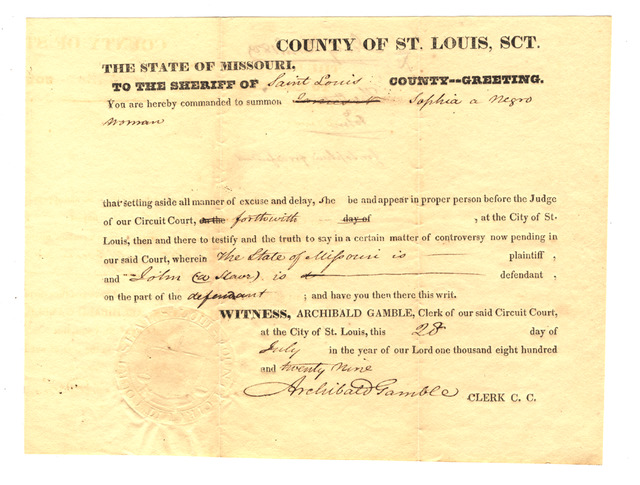 COUNTY OF ST. LOUIS, SCT.
THE STATE OF MISSOURI,
TO THE SHERIFF OF Saint Louis COUNTY--GREETING.
You are hereby commanded to summon Sophia a Negro
Woman
that setting aside all manner of excuse and delay, she be and appear in proper person before the Judge
of our Circuit Court, on the forthwith day of , at the City of St.
Louis, then and there to testify and the truth to say in a certain matter of controversy now pending in
our said Court, wherein The State of Missouri is plaintiff ,
and John (a Slave) is defendant ,
on the part of the defendant ; and have you then there this writ.
WITNESS, ARCHIBALD GAMBLE, Clerk of our said Circuit Court,
at the City of St. Louis, this 28 day of
July in the year of our Lord one thousand eight hundred
and twenty Nine
Archibald Gamble CLERK C. C.